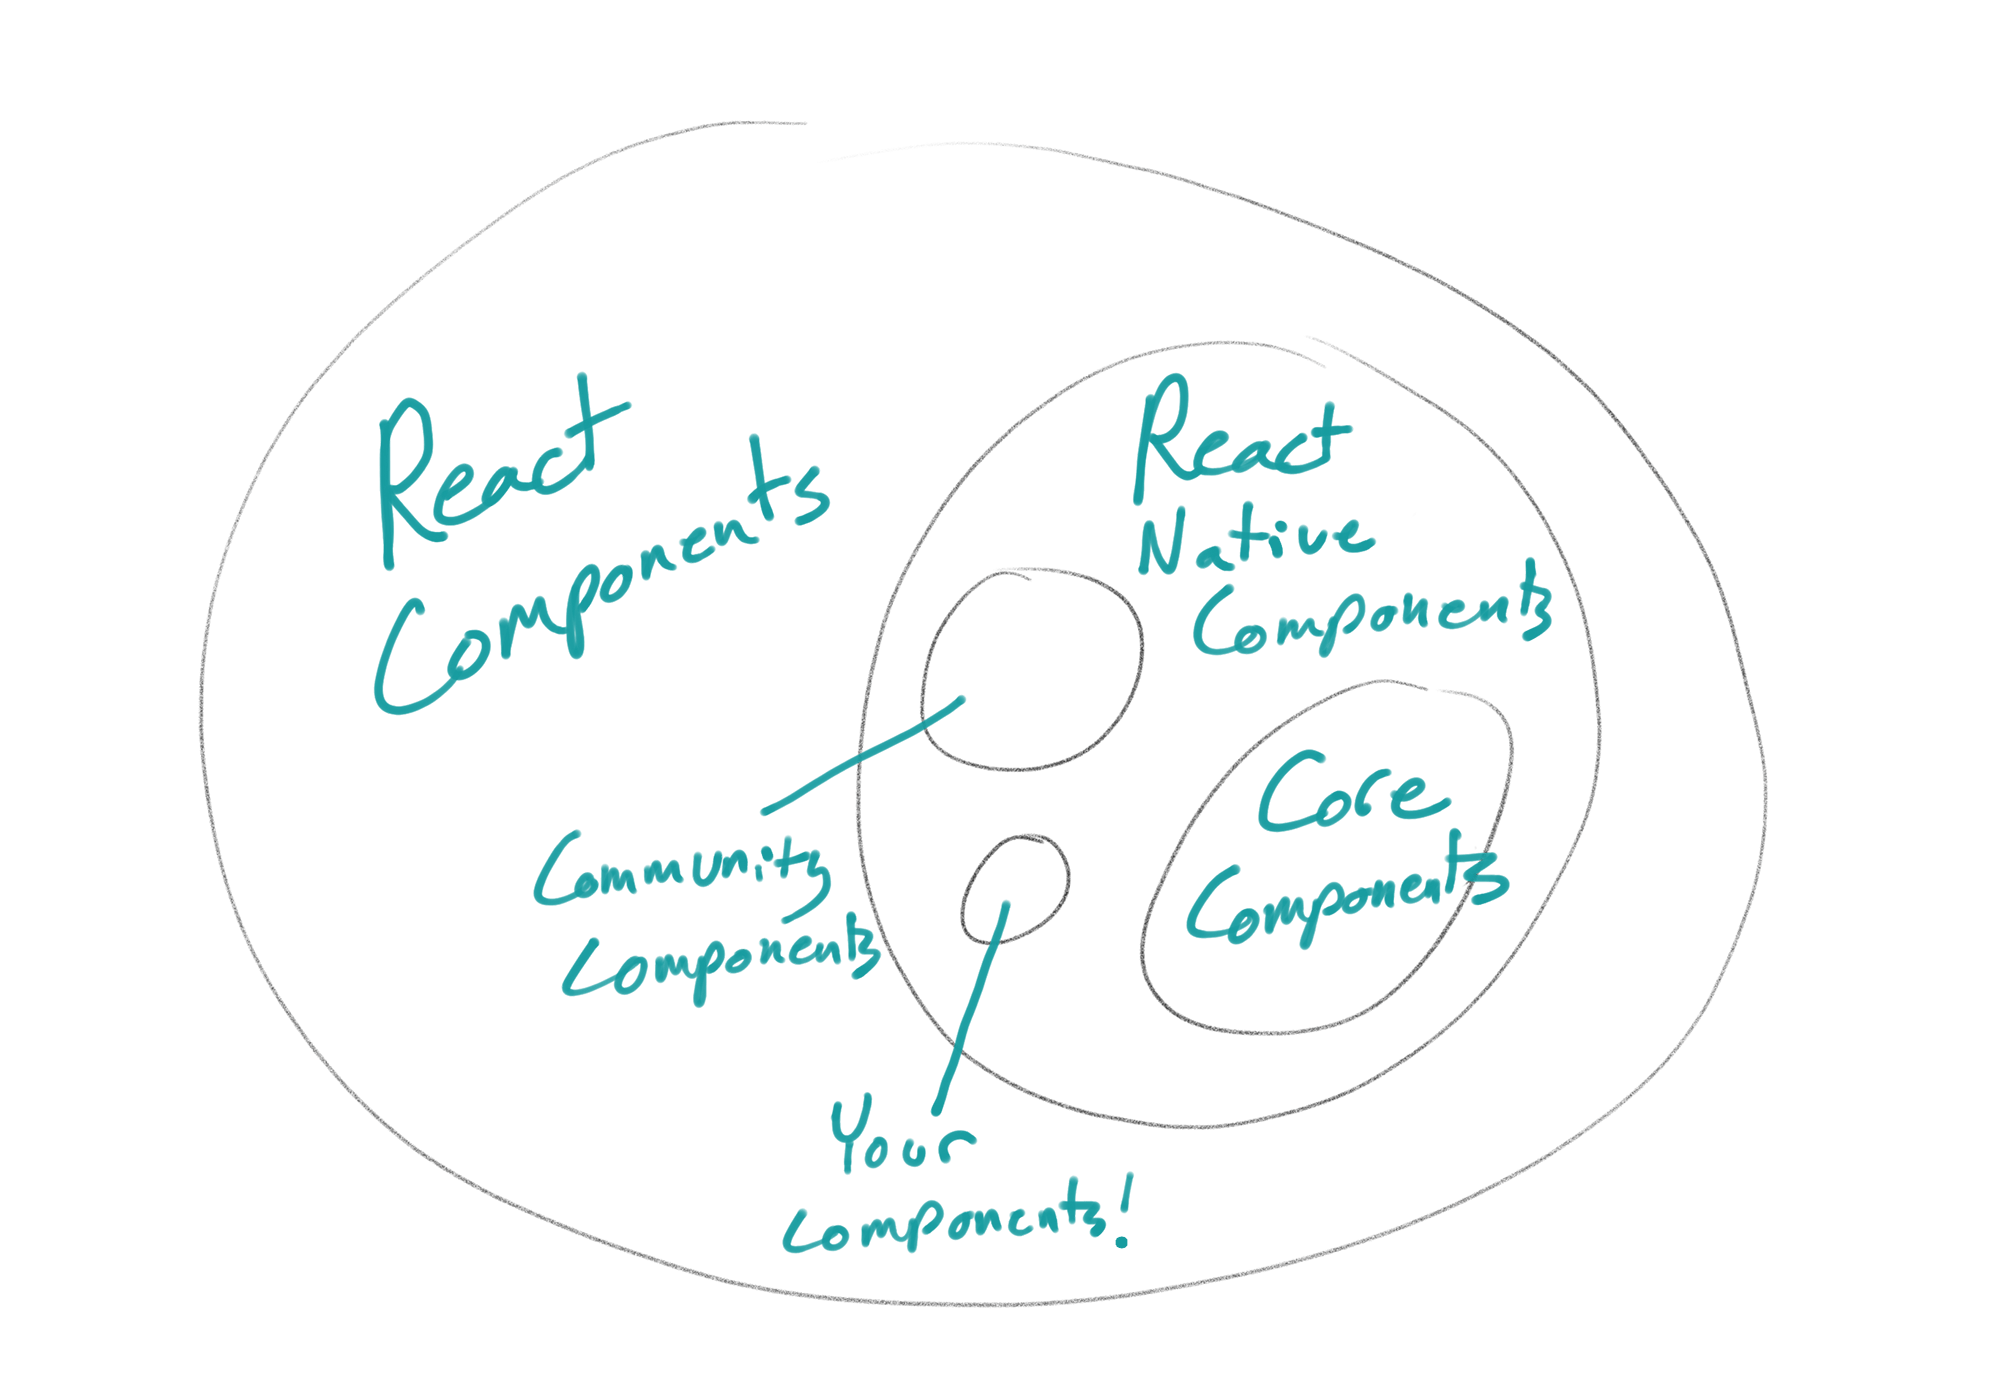 React
Components
React
Native
Components
Core
Components
Community
Components
Your
Components!